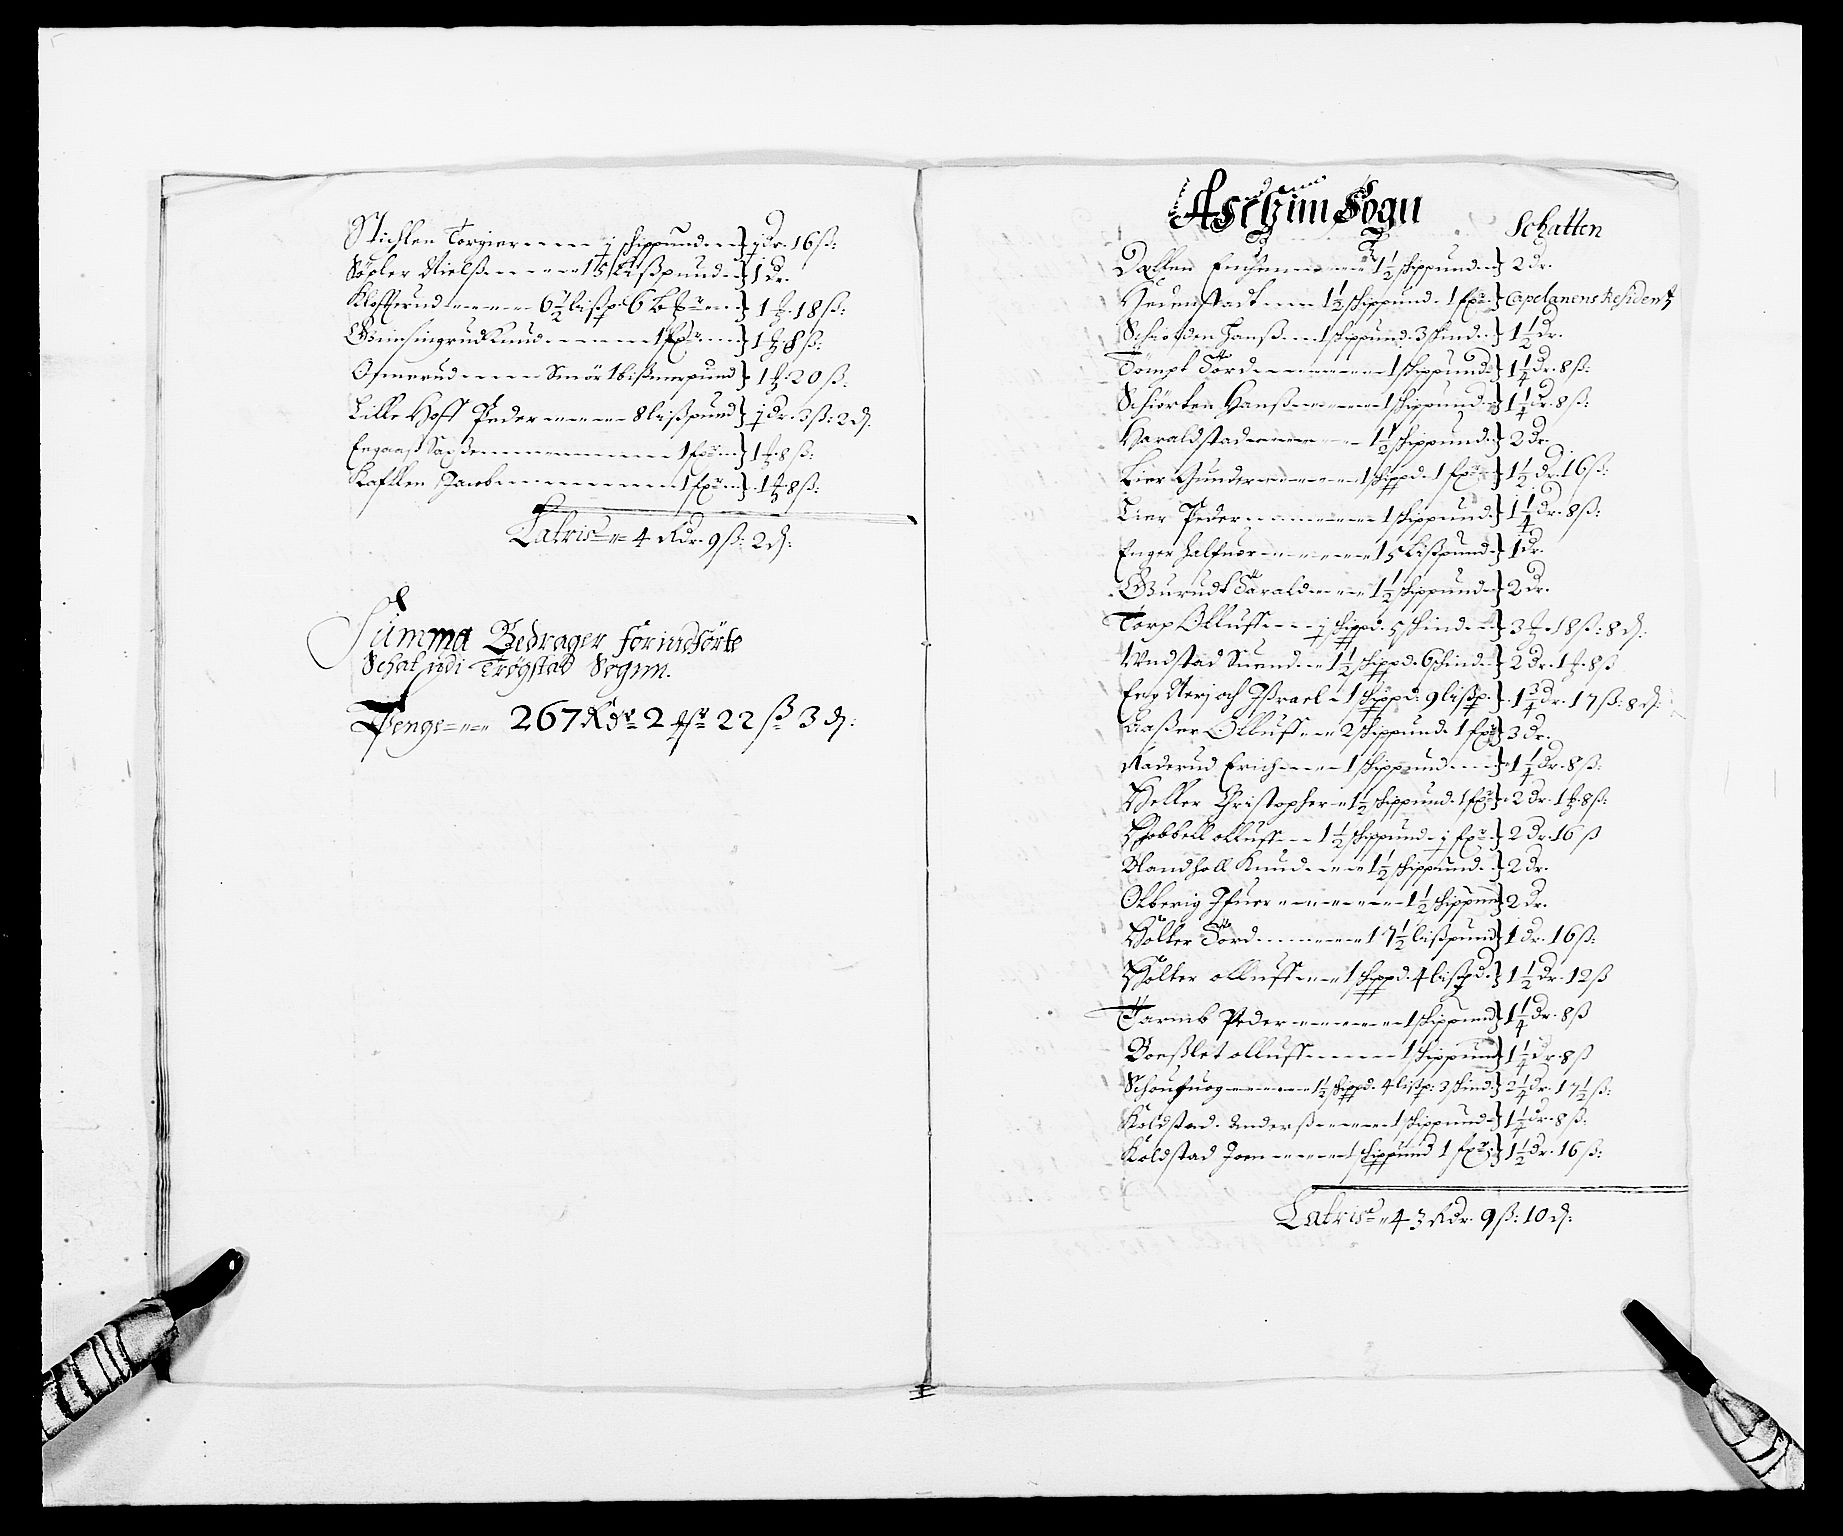 Stichlen Torgier 1 schippund } 1 dr. 16 ß:
Söpler Nielß 15 Lißpund } 1 dr.
Kloffterud 6½ lißpd 6 } 1 18 ß:
Grimsingrud Knud 1 } 1 8 ß:
Osmerud Smör 1 bißmerpund } 1 20 ß.
Lille Hoff Peder 8 lißpund } 1 dr. 3 ß: 2 d.
Engaas 1 } 1 8 ß:
Kafllen Jacob 1 } 1 8 ß:
Latris 4 Rdr. 9 ß: 2 d:
Summa Bedrager forindførte
Schat udi Trögstad Sogen.
Penge 267 Rdr 2 22 ß 3 d:
Aschim Sogn
Schatten
Dallen 1½ schippund } 2 dr.
1½ schippund. 1 } Capelanens Residentz
Hanß 1 schippund. 3 schind. } 1½ dr.
Tömpt Tord 1 schippund } 1¼ dr. 8 ß:
Schiörten Hanß 1 schippund } 1¼ dr. 8 ß:
Haraldstad 1½ schippund } 2 dr.
Lier Gunder 1 schippd. 1 } 1½ dr. 16 ß:
Lier Peder 1 schippund } 1¼ dr. 8 ß:
Enger Halfuor 15 Lißpund } 1 dr.
Gurudt Harald 1½ schippund } 2 dr.
Torp Olluff 1 schippd. 5 schind } 3 18 ß: 8 d:
Vndstad Suend 1½ schippd. 6 schind } 2 dr. 1 8 ß
Eng och Ißrael 1 schippd: 9 lißp. } 1¾ dr. 17 ß: 8 d:
Aaßer Olluff 2 schippund. 1 } 3 dr.
Raderud Erich 1 schippund } 1¼ dr. 8 ß:
Heller Christopher 1½ schippund. 1 } 2 dr. 1 8 ß:
Schobbell olluff 1½ schippund 1 } 2 dr. 16 ß
Mandhall Knud 1½ schippund } 2 dr.
Olberig Ifuer 1½ schippund } 2 dr.
Holter Tord 17½ lißpund } 1 dr. 16 ß:
Holter olluff 1 schippd. 4 lißpd. } 1½ dr. 12 ß
Peder 1 schippund } 1¼ dr. 8 ß
olluff 1 schippund } 1¼ dr. 8 ß
Schoufuog 1½ schippd. 4 lißp: 3 schind } 2¼ dr. 17½ ß:
Koldstad Anderß 1 schippund } 1¼ dr. 8 ß:
Koldstad Joen 1 schippund 1 } 1½ dr. 16 ß:
Latris 43 Rdr. 9 ß: 10 d: